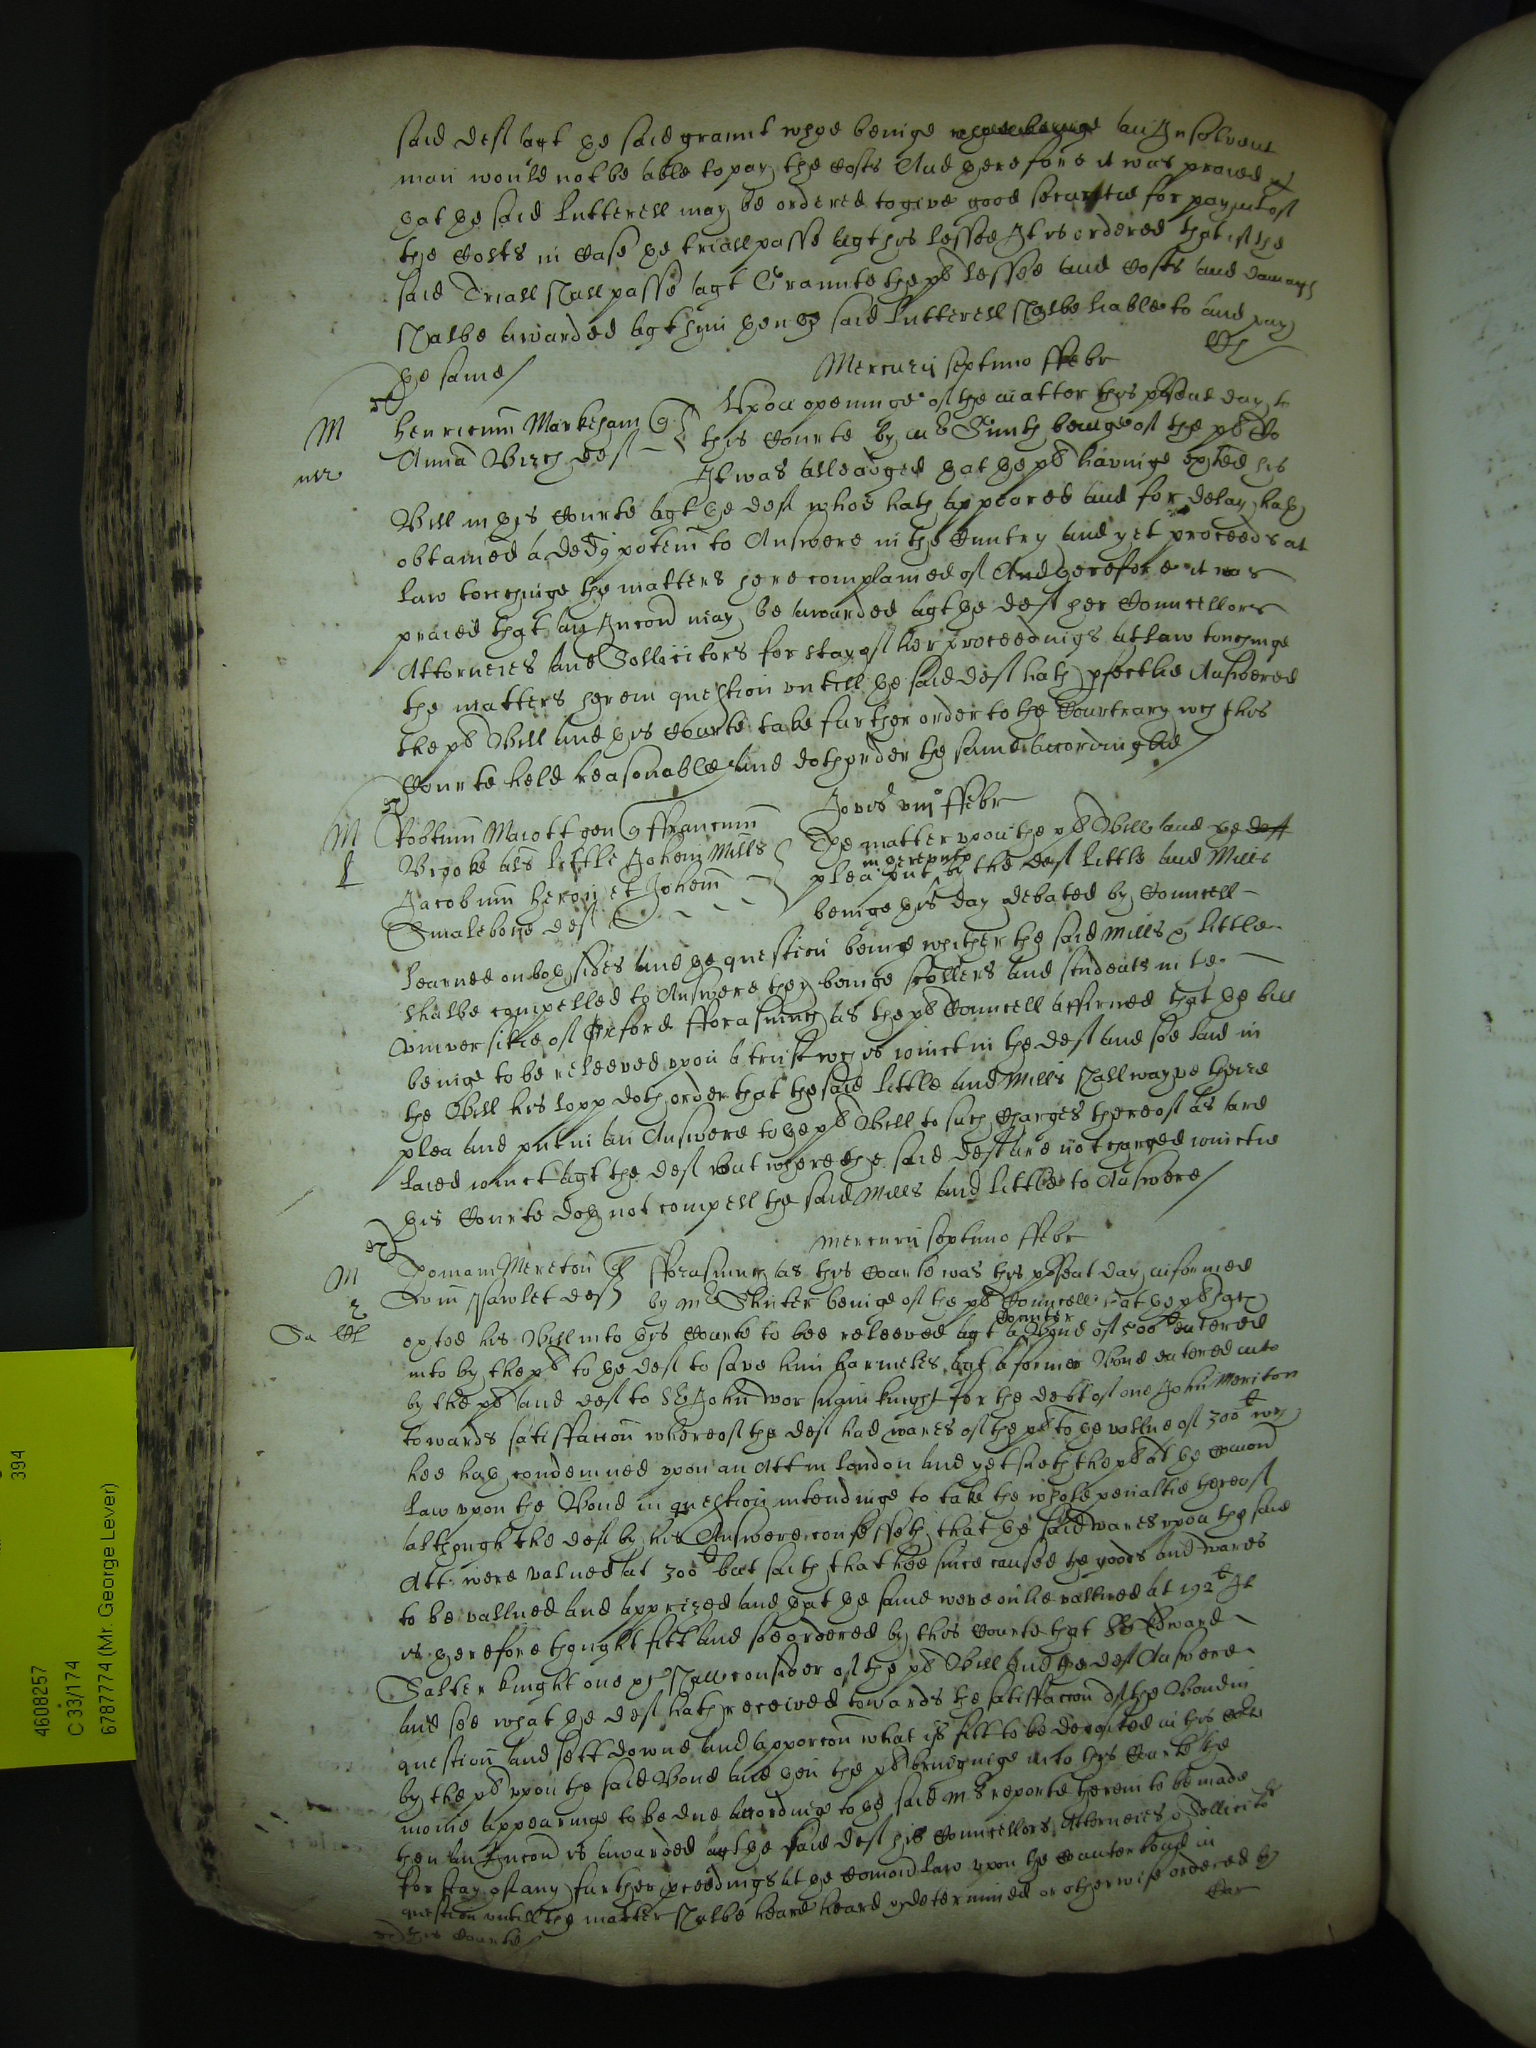 said deft agt the said graunt whoe beinge an Insolvent
man would not be able to pay the costs And therefore it was praied
that the said Lutterell may be ordered to give good securitie for paymt of
the costs in case the triall passe agt his lessee It is ordered that if the
said Triall shall passe agt Graunte the pl lessee and costs and damags
shalbe awarded agt him then the said Lutterell shalbe liable to and pay
the same
Mercurii septimo ffebr
M
Henricum Markham
Anna Birch deft
Upon openinge of the matter this pssent day to
this Courte by mr Smith beinge of the pl Co
It was alleadged that the pl havinge exhited his
Bill in this Courte agt the deft whoe hath appeared and for delay hath
obtained a Ded potem to Answere in the Cuntry and yet proceeds at
Law touchinge the matters here complained of And therefore it was
praied that an Iniuncon may be awarded agt the deft her Councellors
Attorneies and Sollicitors for stay of her proceedings at law touchinge
the matters herein question untill the said deft hath pfectlie Answered
the pl Bill and this Courte take further order to the Contrary wch this
Courte held reasonable and doth order the same accordinglie
Jovis viijo ffebr
M
Robtum Maiott gen ffranciscum
Brooke als Little Johem Mills
Jacobum Heron et Johem
Smalebone deft
The matter upon the pl Bill and the deft
plea put in by the deft Little and Mills
beinge this day debated by Councell
learned on both sides and the question beinge whither the said Mills & Little
shalbe compelled to Answere they beinge scollers and students in the
Universitie of Oxford fforasmuch as the pl Councell affirmed that the bill
beinge to be releeved upon a trust wch is ioinct in the deft and soe laid in
the Bill his Lopp doth order that the said Little and Mills shall wayve theire
plea and put in an Answere to the pl Bill to such Charges thereof as are
laied ioinct agt the deft but where the said deft are not charged ioinctlie
this Courte doth not compell the said Mills and Little to Answere
Mercurii septimo ffebr
M
Thomam Mereton
Pawlet deft
fforasmuch as this Courte was this pssent day informed
by mr Shuter beinge of the pl Councell that the pl hath
exhited his Bill into this Courte to bee releeved agt a Counter Bond of 500li entered
into by the pl to the deft to save him harmeles agt a former Bond entered into
by the pl and deft to Sr John knight for the debt of one John Meriton
towards satisfaccon whereof the deft had wares of the pl to the vallue of 300li wch
hee hath condemned upon an Att in London and yet sueth the pl at the Comon
Law upon the Bond in question intendinge to take the whole penaltie thereof
although the deft by his Answere confesseth that the said wares upon the said
Att. were valued at 300li but saith that hee since caused the goods and wares
to be vallued and apprized and that the same were onlie vallued at 192li It
is therefore thought fitt and soe ordered by this Courte that Sr Edward
Salter knight one shall consider of the pl Bill and the deft Answere
and see what the deft hath received towards the satisfaccon of the Bond in
question and sett downe and apporcon what is fitt to be deposited in this Courte
by the pl upon the said Bond and then the pl bringinge into this Courte the
monie appearinge to be due accordinge to the said mr reporte therein to be made
then an Iniuncon is awarded agt the said deft his Councellors Attorneies & Sollicitors
for stay of any further proceedings at the Comon Law upon the Counter bond in
question untill the matter shalbe heard heard & determined or otherwise ordered by
this Courte
394
4608257
C 33/174
6787774 (Mr. George Lever)